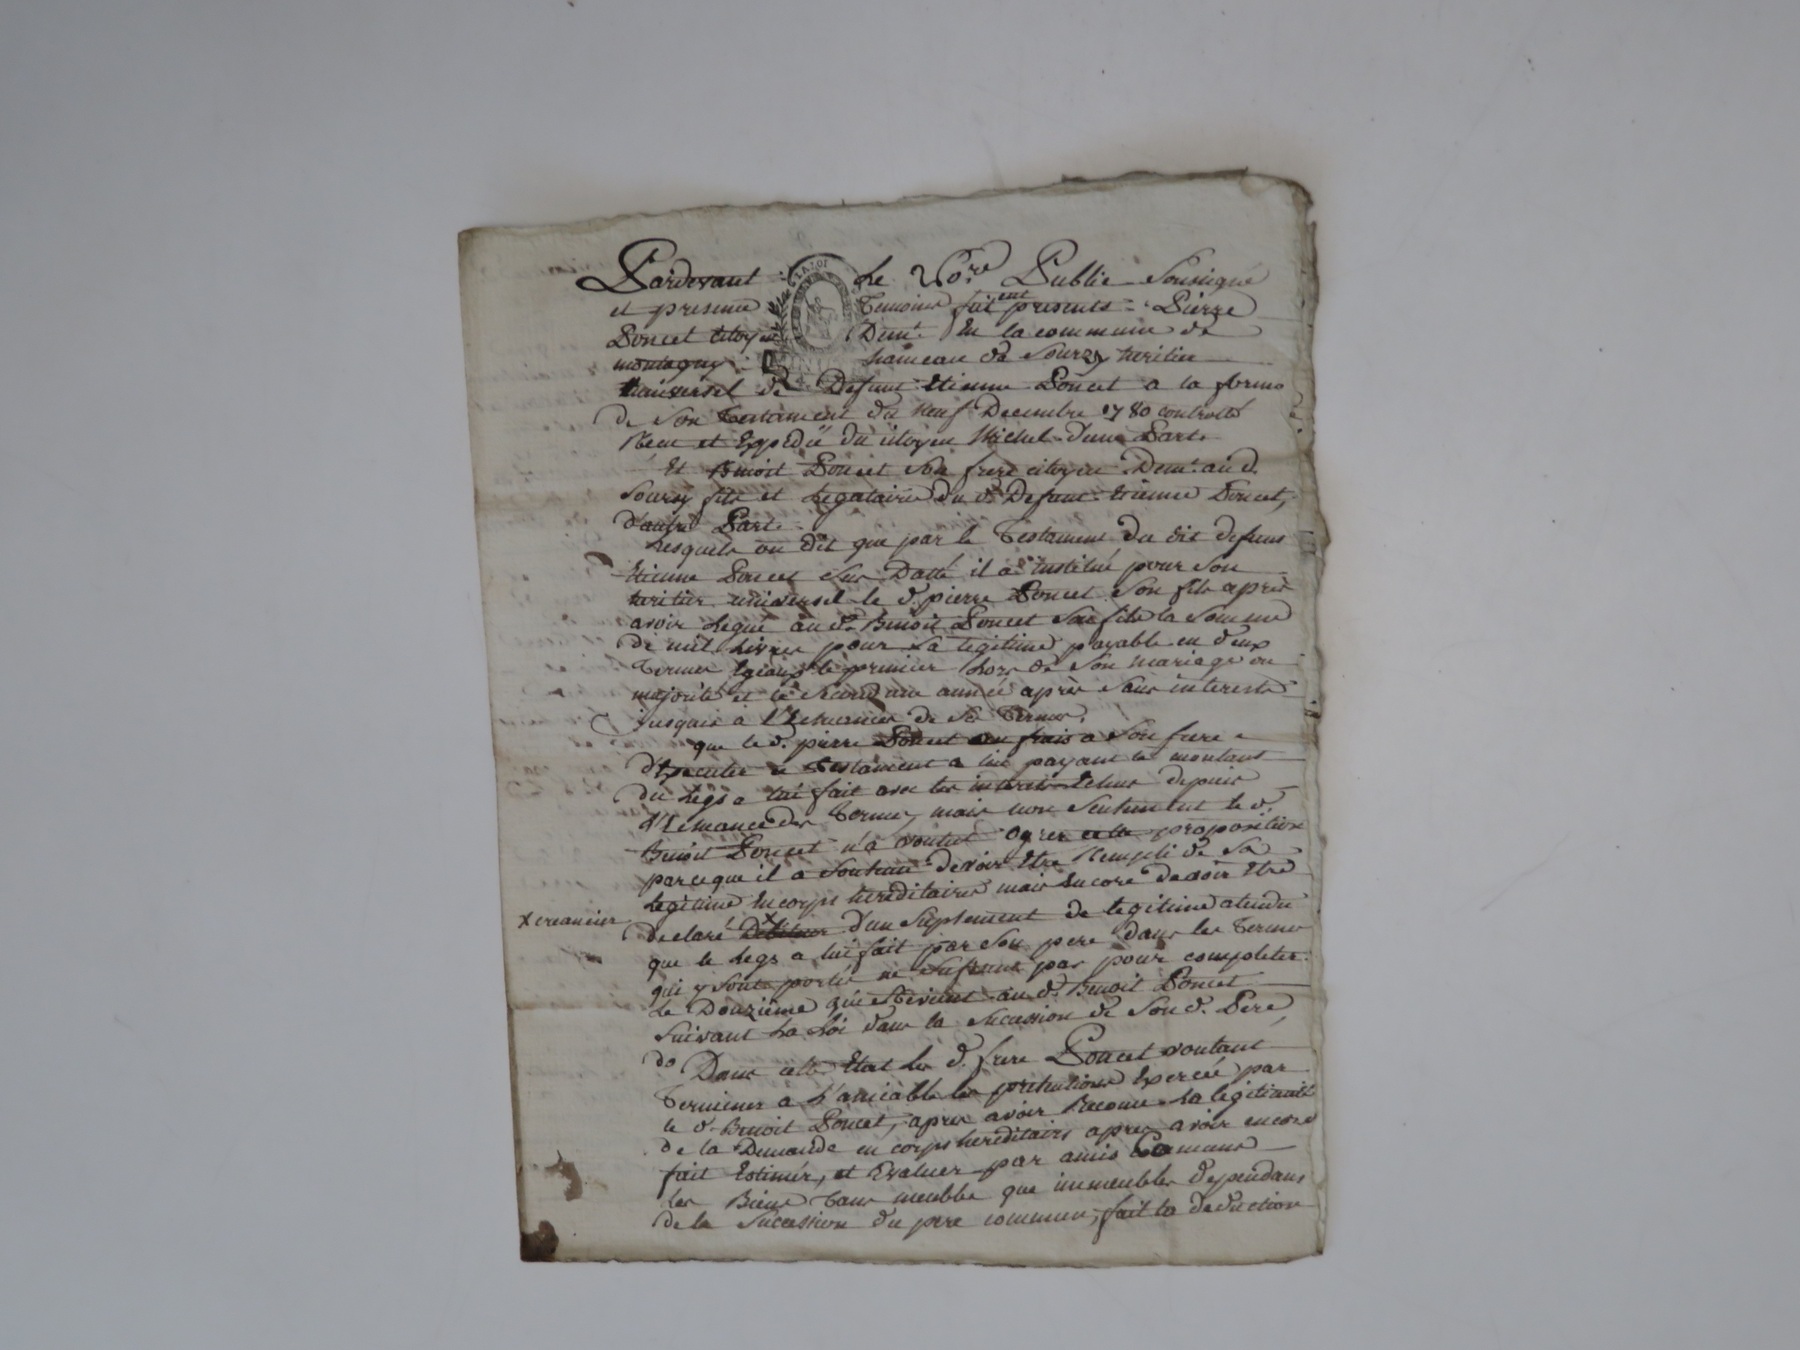 Pardevant Le No.re Public Soussigné
LA LOI
et presence Temoins fait ent presents = Pierre
Poncet Citoyen Demt. En la commune de
montagny hameau de Sourzy heritier
universel de Defunt Etienne Poncet a la forme
de Son Testament du neuf Decembre 1780 controllé
Reçu et Expedié du citoyen Michel d'une Part.
Et Benoit Poncet Son frere citoyen Demt. au d.
Sourzy fils et Legataire du d. Defunt Etienne Poncet,
d'autre Part.
Lesquels on dit que par le Testament du dit defunt
Etienne Poncet Sus Datté il a institué pour Son
heritier universel le d. pierre Poncet Son fils après
avoir Legué au d. Benoit Poncet Son fils la Somme
de mil Livres pour Sa legitime payable en deux
Termes Egaux le premier Lors de Son mariage ou
majorité et le Second une année après Sans interests
jusques à L'Echuance de Sd Termes.
que le d. pierre Poncet a Son frere
d'Executer le Testament a lui payant le montant
du Legs a lui fait avec les interets Echus depuis
L'Echeance des Termes, mais non Seulement le d.
Benoit Poncet n'a voulut agreer cette proposition
parceque il a Soutenu devoir Etre Rempli de Sa
Legitime En corps hereditaires mais Encore devoir Etre
x creancier
declaré Debiteur x d'un Suplement de legitime atendu
que le Legs a lui fait par Son pere dans les Termes
qui y Sont portés ne Sufisent pas pour completer
Le Douzieme qui Revient au d. Benoit Poncet
Suivant La Loi dans la Succession de Son d. Pere
do Dans cette Etat les d. frere Poncet voulant
Terminer a L'amiable les pretentions Exercée par
le d. Benoit Poncet, apres avoir Reconnu La légitimité
de la Demande en corps hereditaires apres avoir encore
fait Estimer, et Evaluer par amis Comuns
les Biens Tans meubles que immeubles dependans
de la Succession du pere commun, fait la deduction